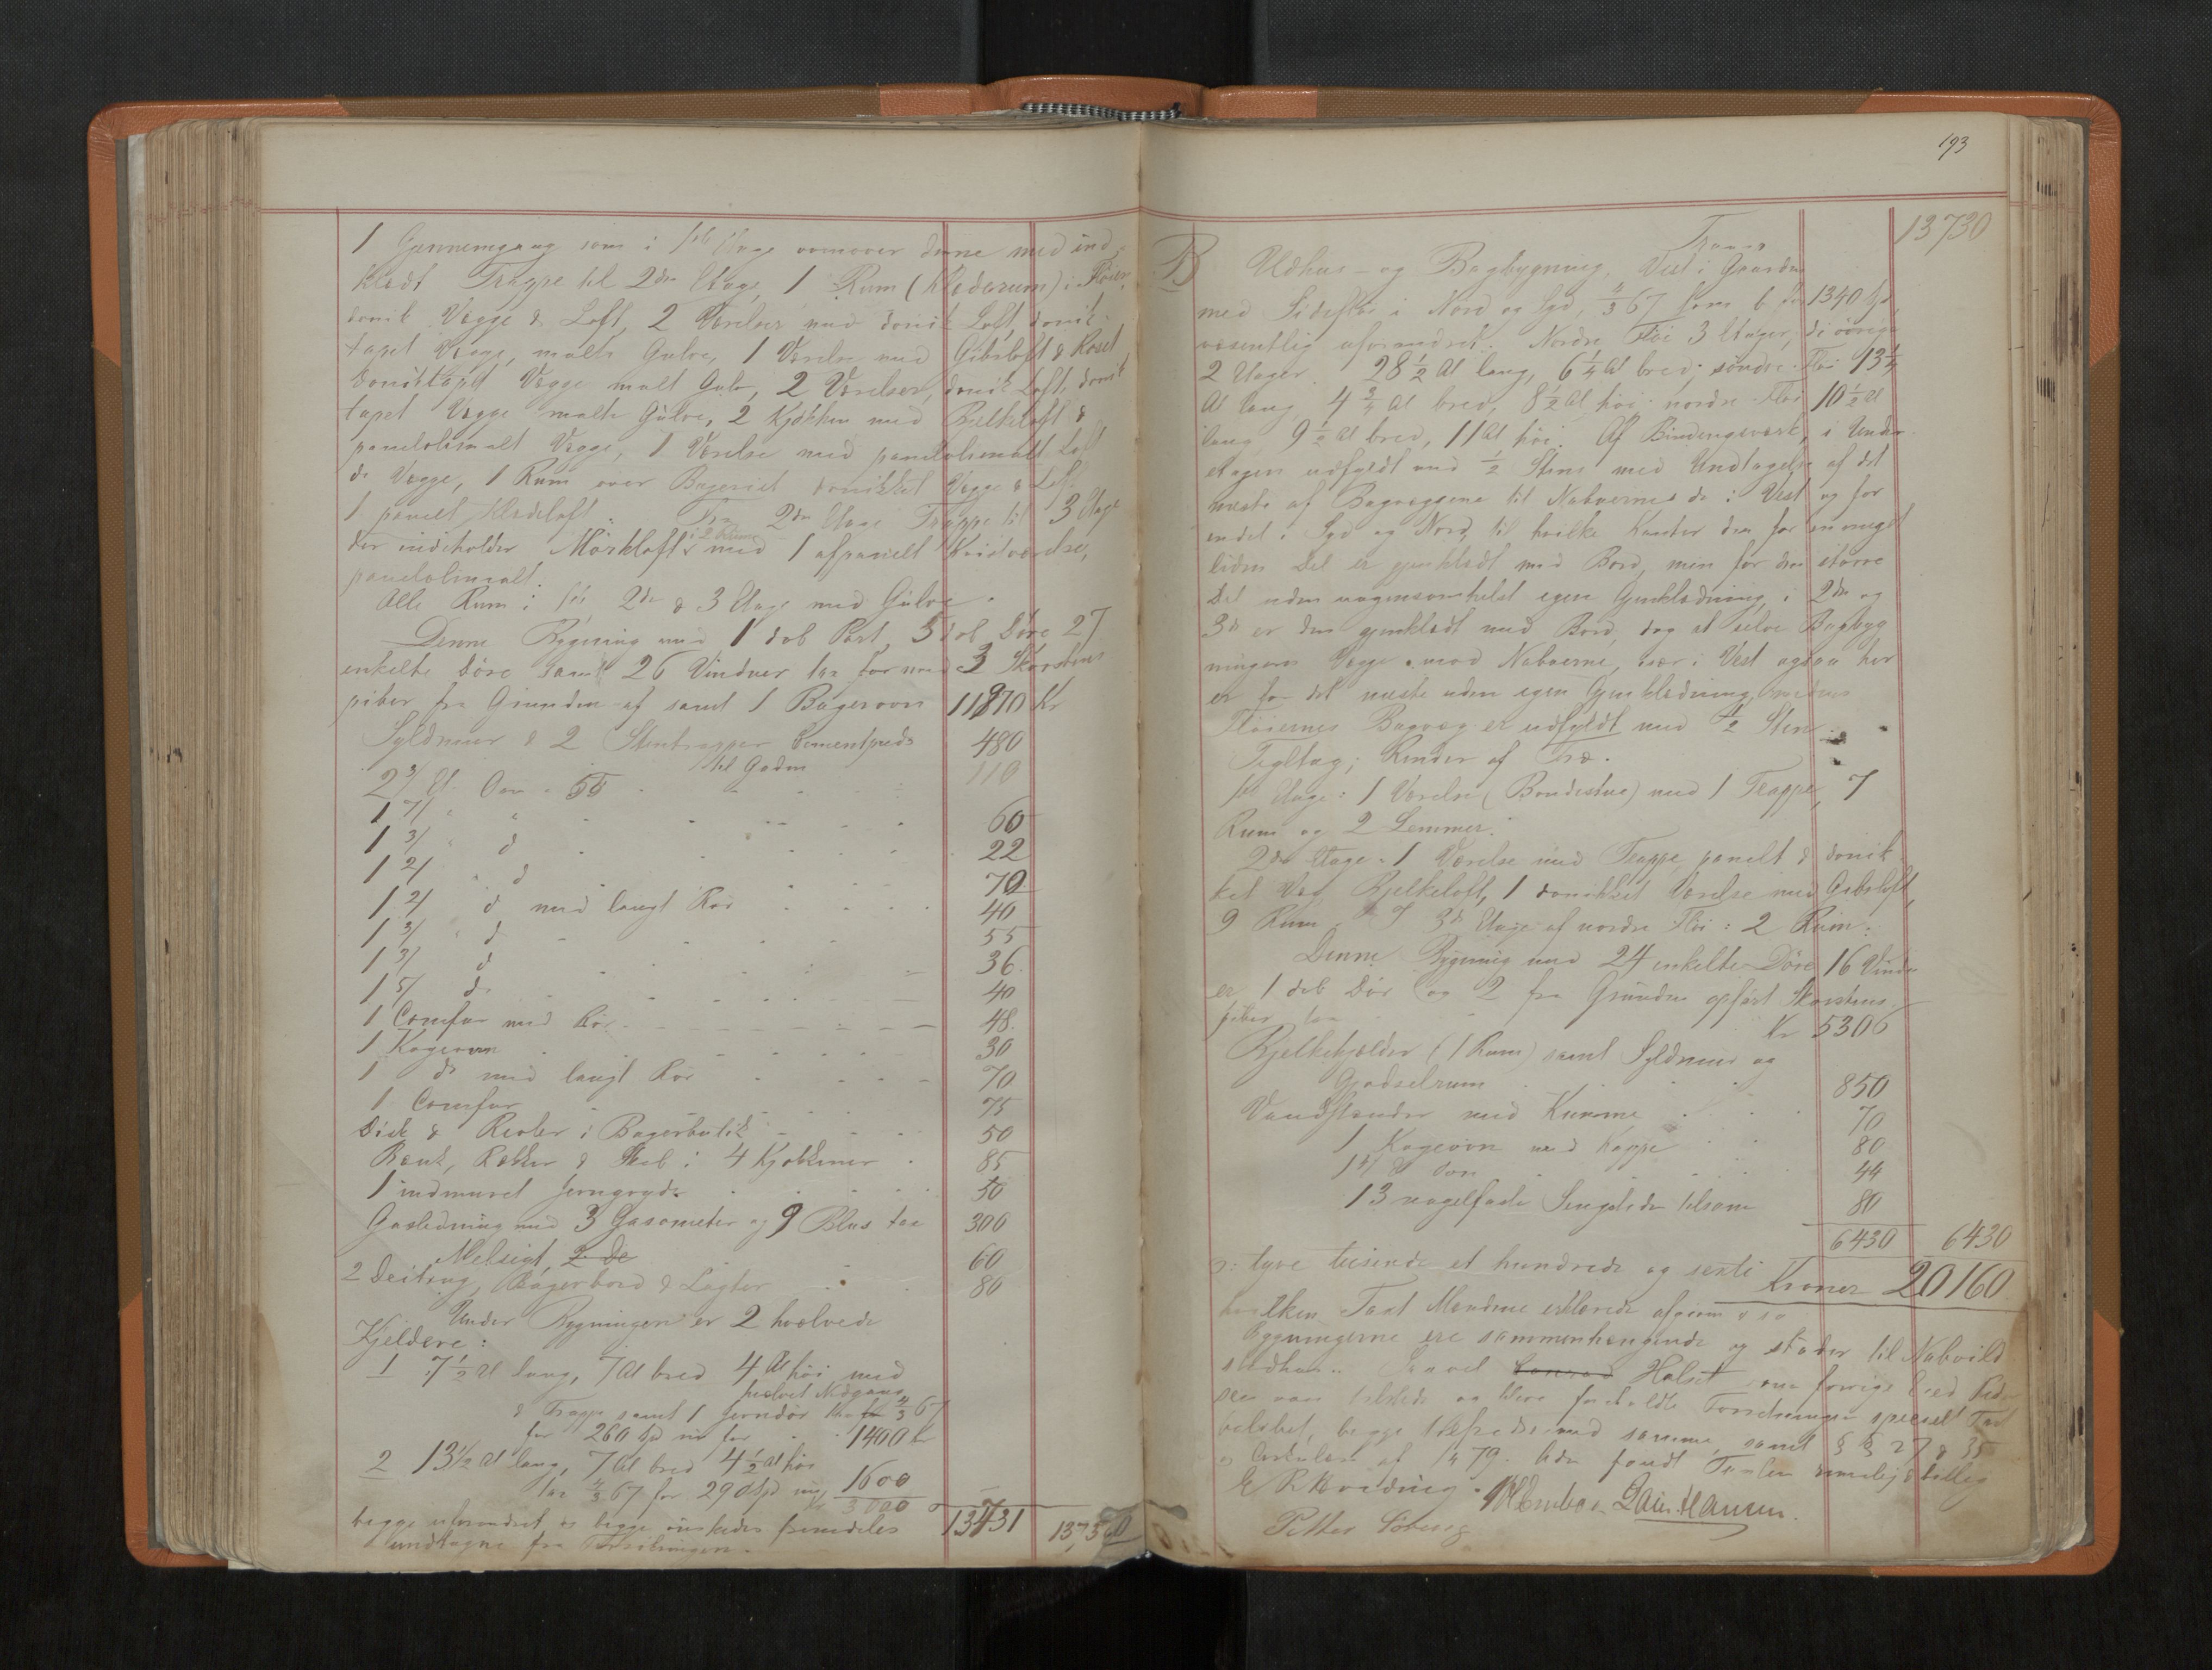 1 Gjennemgang som i 1ste Etage ovenover denne med ind-
klædt Trappe til 2den Etage, 1 Rum (Klæderum) i Fløien,
donik. Vægge & Loft, 2 Værelser med donik Loft, donik-
tapet Vægge, malte Gulve, 1 Værelse med Gibsloft & Roset
doniktapet Vægge malt Gulv, 2 Værelser, donik Loft, donik
tapet Vægge malte Gulve, 2 Kjøkken med Bjelkeloft &
paneloliemalt Vægge, 1 Værelse med paneloliemalt Loft
do Vægge, 1 Rum over Bageriet donikket Vægge & Loft
1 panelt Klædeloft. Fra 2den Etage Trappe til 3 Etage
der indeholder Mørkloft i 2 Rum med 1 afpanelt Kvistværelse,
paneloliemalt.
Alle Rum i 1ste 2den & 3 Etage med Gulve.
Denne Bygning med 1 dob Port, 5 dob Døre 27
enkelte Døre samt 26 Vinduer tax for med 3 Skorstens
piber fra Grunden af samt 1 Bagerovn 11970 Kr
Syldmur & 2 Stentrapper Cementpuds 480
til Gaden
2 3/ Et. Ovn 110
1 7/ " " 60
1 3/ " d 22
1 2/ " d 70
1 2/ d med langt Rør 40
1 3/ " d 55
1 3/ d 36
1 5/ do 40
1 Comfur med Rør 48
1 Kogeovn 30
1 do med langt Rør 70
1 Comfur 75
Disk & Reoler i Bagerbutik 50
Bænk, Rækker & Skab i 4 Kjøkkener 85
1 indmuret Jerngryde 50
Gasledning med 3 Gasometer og 9 Blus tax 300
Melsigt, 2 De 60
2 Deitrug, Bagerbord & Lægter 80
Under Bygningen er 2 hvælvede
Kjeldere:
1 7 1/2 Al lang, 7 Al bred 4 Al høi med
hvelvet Nedgang
& Trappe samt 1 Jerndør tax 4/3 67
for 260 Spd nu for 1400 kr
2 13 1/2 Al lang, 7 Al bred 4 1/2 Al høi
tax 4/3 67 for 290 Spd nu 1600
3000
begge uforandret og begge ønskedes fremdeles 13731 1373
undtagne fra Forsikringen.
193
13730
B Udhus- og Bagbygning, Vest i Gaarden
med Sidefløi i Nord og Syd, 4/3 67 som b for 1340 Spd
væsentlig uforandret. Nordre Fløi 3 Etager, de øvrige
2 Etager. 28 1/2 Al lang, 6 1/4 Al bred; søndre Fløi 13 1/4
Al lang 4 3/4 Al bred, 8 1/2 Al høi; nordre Fløi 10 1/2 Al
lang 9 1/2 Al bred, 11 Al høi. Af Bindingsværk, i Under
etagen udfyldt med 1/2 Stens med Undtagelse af det
meste af Bagvæggene til Naboernes do i Vest og for
endel i Syd og Nord, til hvilke Kanter den for en meget
liden Del er gjenklædt med Bord, men for den større
Del uden nogensomhelst egen Gjenklædning, i 2den og
3die er den gjenklædt med Bord, dog at selve Bagbyg
ningens Vægge mod Naboerne, især i Vest ogsaa her
er for det meste uden egen Gjenklædning, medens
Fløiernes Bagvæg er udfyldt med 1/2 Sten.
Tegltag; Render af Træ.
1ste Etage: 1 Værelse (Bondestue) med 1 Trappe, 7
Rum og 2 Lemmer.
2den Etage: 1 Værelse med Trappe, panelt & donik-
ket Væg, Bjelkeloft, 1 donikket Værelse med Gibsloft,
9 Rum. I 3die Etage af nordre Fløi: 2 Rum.
Denne Bygning med 24 enkelte Døre 16 Vindu
er 1 dob Dør og 2 fra Grunden opført Skorstens-
piber tax Kr 5306
Bjelkekjelder (1 Rum) samt Syldmur og
Gjødselrum 850
Vandstænder med Kumme 70
1 Kogeovn med Kappe 80
Ovn 44
13 nagelfaste Sengesteder tilsam 80
6430 6430
ɔ: tyve tusinde et hundrede og sexti Kroner 20160
hvilken Taxt Mændene erklærede afgiven
Bygningerne ere sammenhængende og støder til Nabovild
Halset
vare tilstede og blev foreholdt Forretningen specielt Taxt
beløbet, begge tilfreds med samme, samt §§ 27 & 35
Petter Soberg